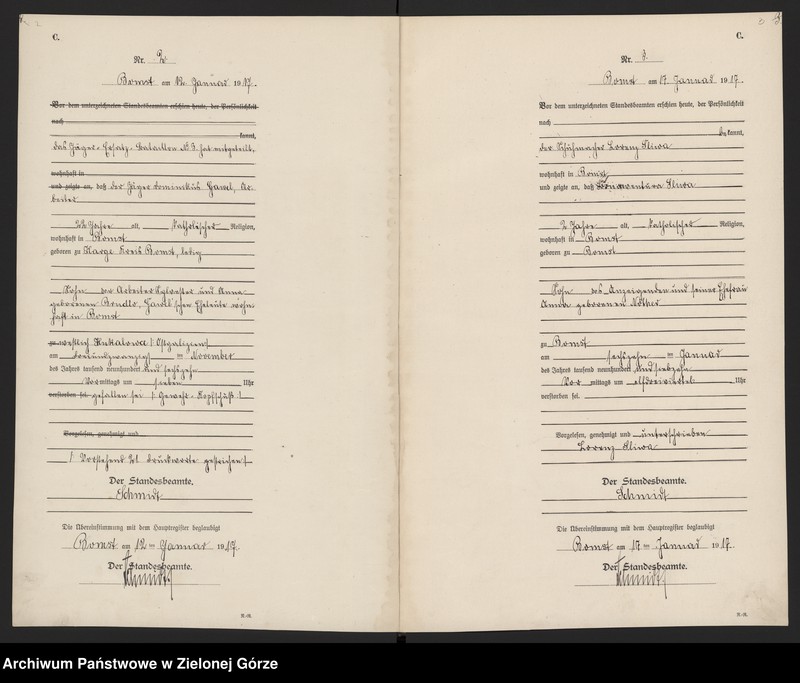 C.
Nr. 2
Bomst am 12. Januar 1917.
Vor dem unterzeichneten Standesbeamten erschien heute, der Persönlichkeit
nach
kannt,
das Jäger-Ersatz-Bataillon N. 5. hat mitgeteilt,
wohnhaft in
und zeigte an, daß der Jäger Dominikus Ar-
beiter
22 Jahre alt, Katholischer Religion,
wohnhaft in Bomst
geboren zu Karge Kreis Bomst, ledig
Sohn der Arbeiter Sylvester und Anna
geborenen schen Eheleute wohn-
haft in Bomst
zu westlich (Ostgalizien)
am dreiundzwanzig ten November
des Jahres tausend neunhundert und sechszehn
Vormittags um sieben Uhr
verstorben sei. gefallen sei (Gewehr-Kopfschuß)
Vorgelesen, genehmigt und
(Vorstehend Druckworte gestrichen)
Der Standesbeamte.
Schmidt
Die Übereinstimmung mit dem Hauptregister beglaubigt
Bomst am 12 ten Januar 1917.
Der Standesbeamte.
Schmidt
C.
Nr. 3.
Bomst am 17. Januar 1917.
Vor dem unterzeichneten Standesbeamten erschien heute, der Persönlichkeit
nach
be kannt,
der Schuhmacher Lorenz Sliwa
wohnhaft in Bomst
und zeigte an, daß Bonaventura Sliwa
2 Jahre alt, Katholischer Religion,
wohnhaft in Bomst
geboren zu Bomst
Sohn des Anzeigenden und seiner Ehefrau
Anna geborenen
zu Bomst
am sechszehn ten Januar
des Jahres tausend neunhundert und siebzehn
Vor mittags um elfdreiviertel Uhr
verstorben sei.
Vorgelesen, genehmigt und unterschrieben
Lorenz Sliwa
Der Standesbeamte.
Schmidt
Die Übereinstimmung mit dem Hauptregister beglaubigt
Bomst am 17 ten Januar 1917.
Der Standesbeamte.
Schmidt
Archiwum Państwowe w Zielonej Górze